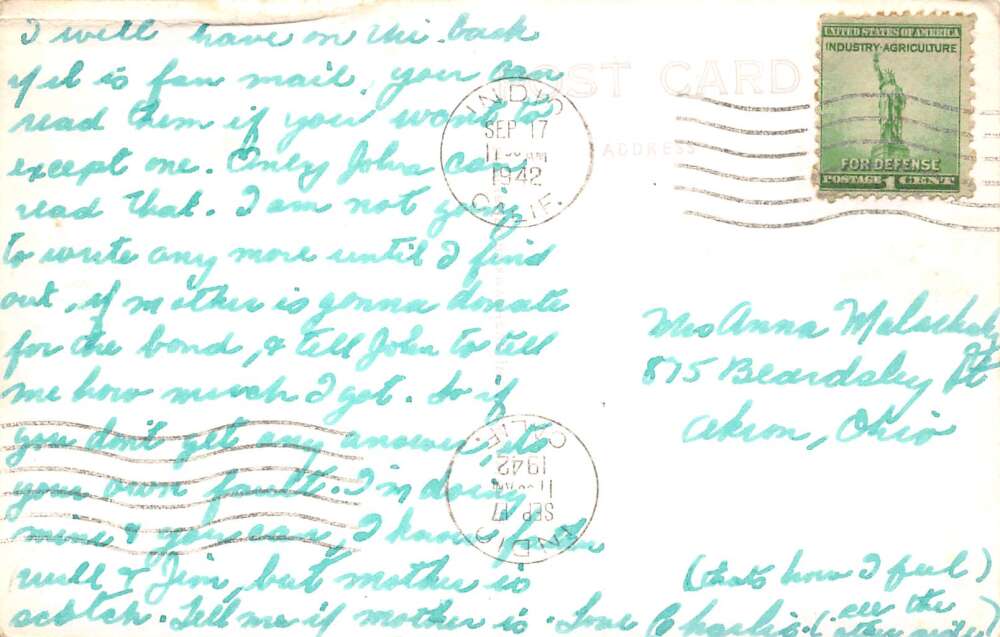 I will have on the back
of it is fan mail, you can
read them if you want to
except one. Only John can
read that. I am not going
to write any more until I find
out, if mother is gonna donate
for the bond, & tell John to tell
me how much I got. So if
you don't get any answer, its
your own fault. I'm doing
mine & you can, I know father
will & Jim, but mother is
scotch. Tell me if mother is. Love Charlie.
(thats how I feel)
(see the
other side)
POST CARD
ADDRESS
INDIO
SEP 17
11 AM
1942
CALIF.
UNITED STATES OF AMERICA
INDUSTRY·AGRICULTURE
FOR DEFENSE
POSTAGE 1 CENT
Mrs Anna
875 Beardsley St
Akron, Ohio
INDIO
SEP 17
11 AM
1942
CALIF.